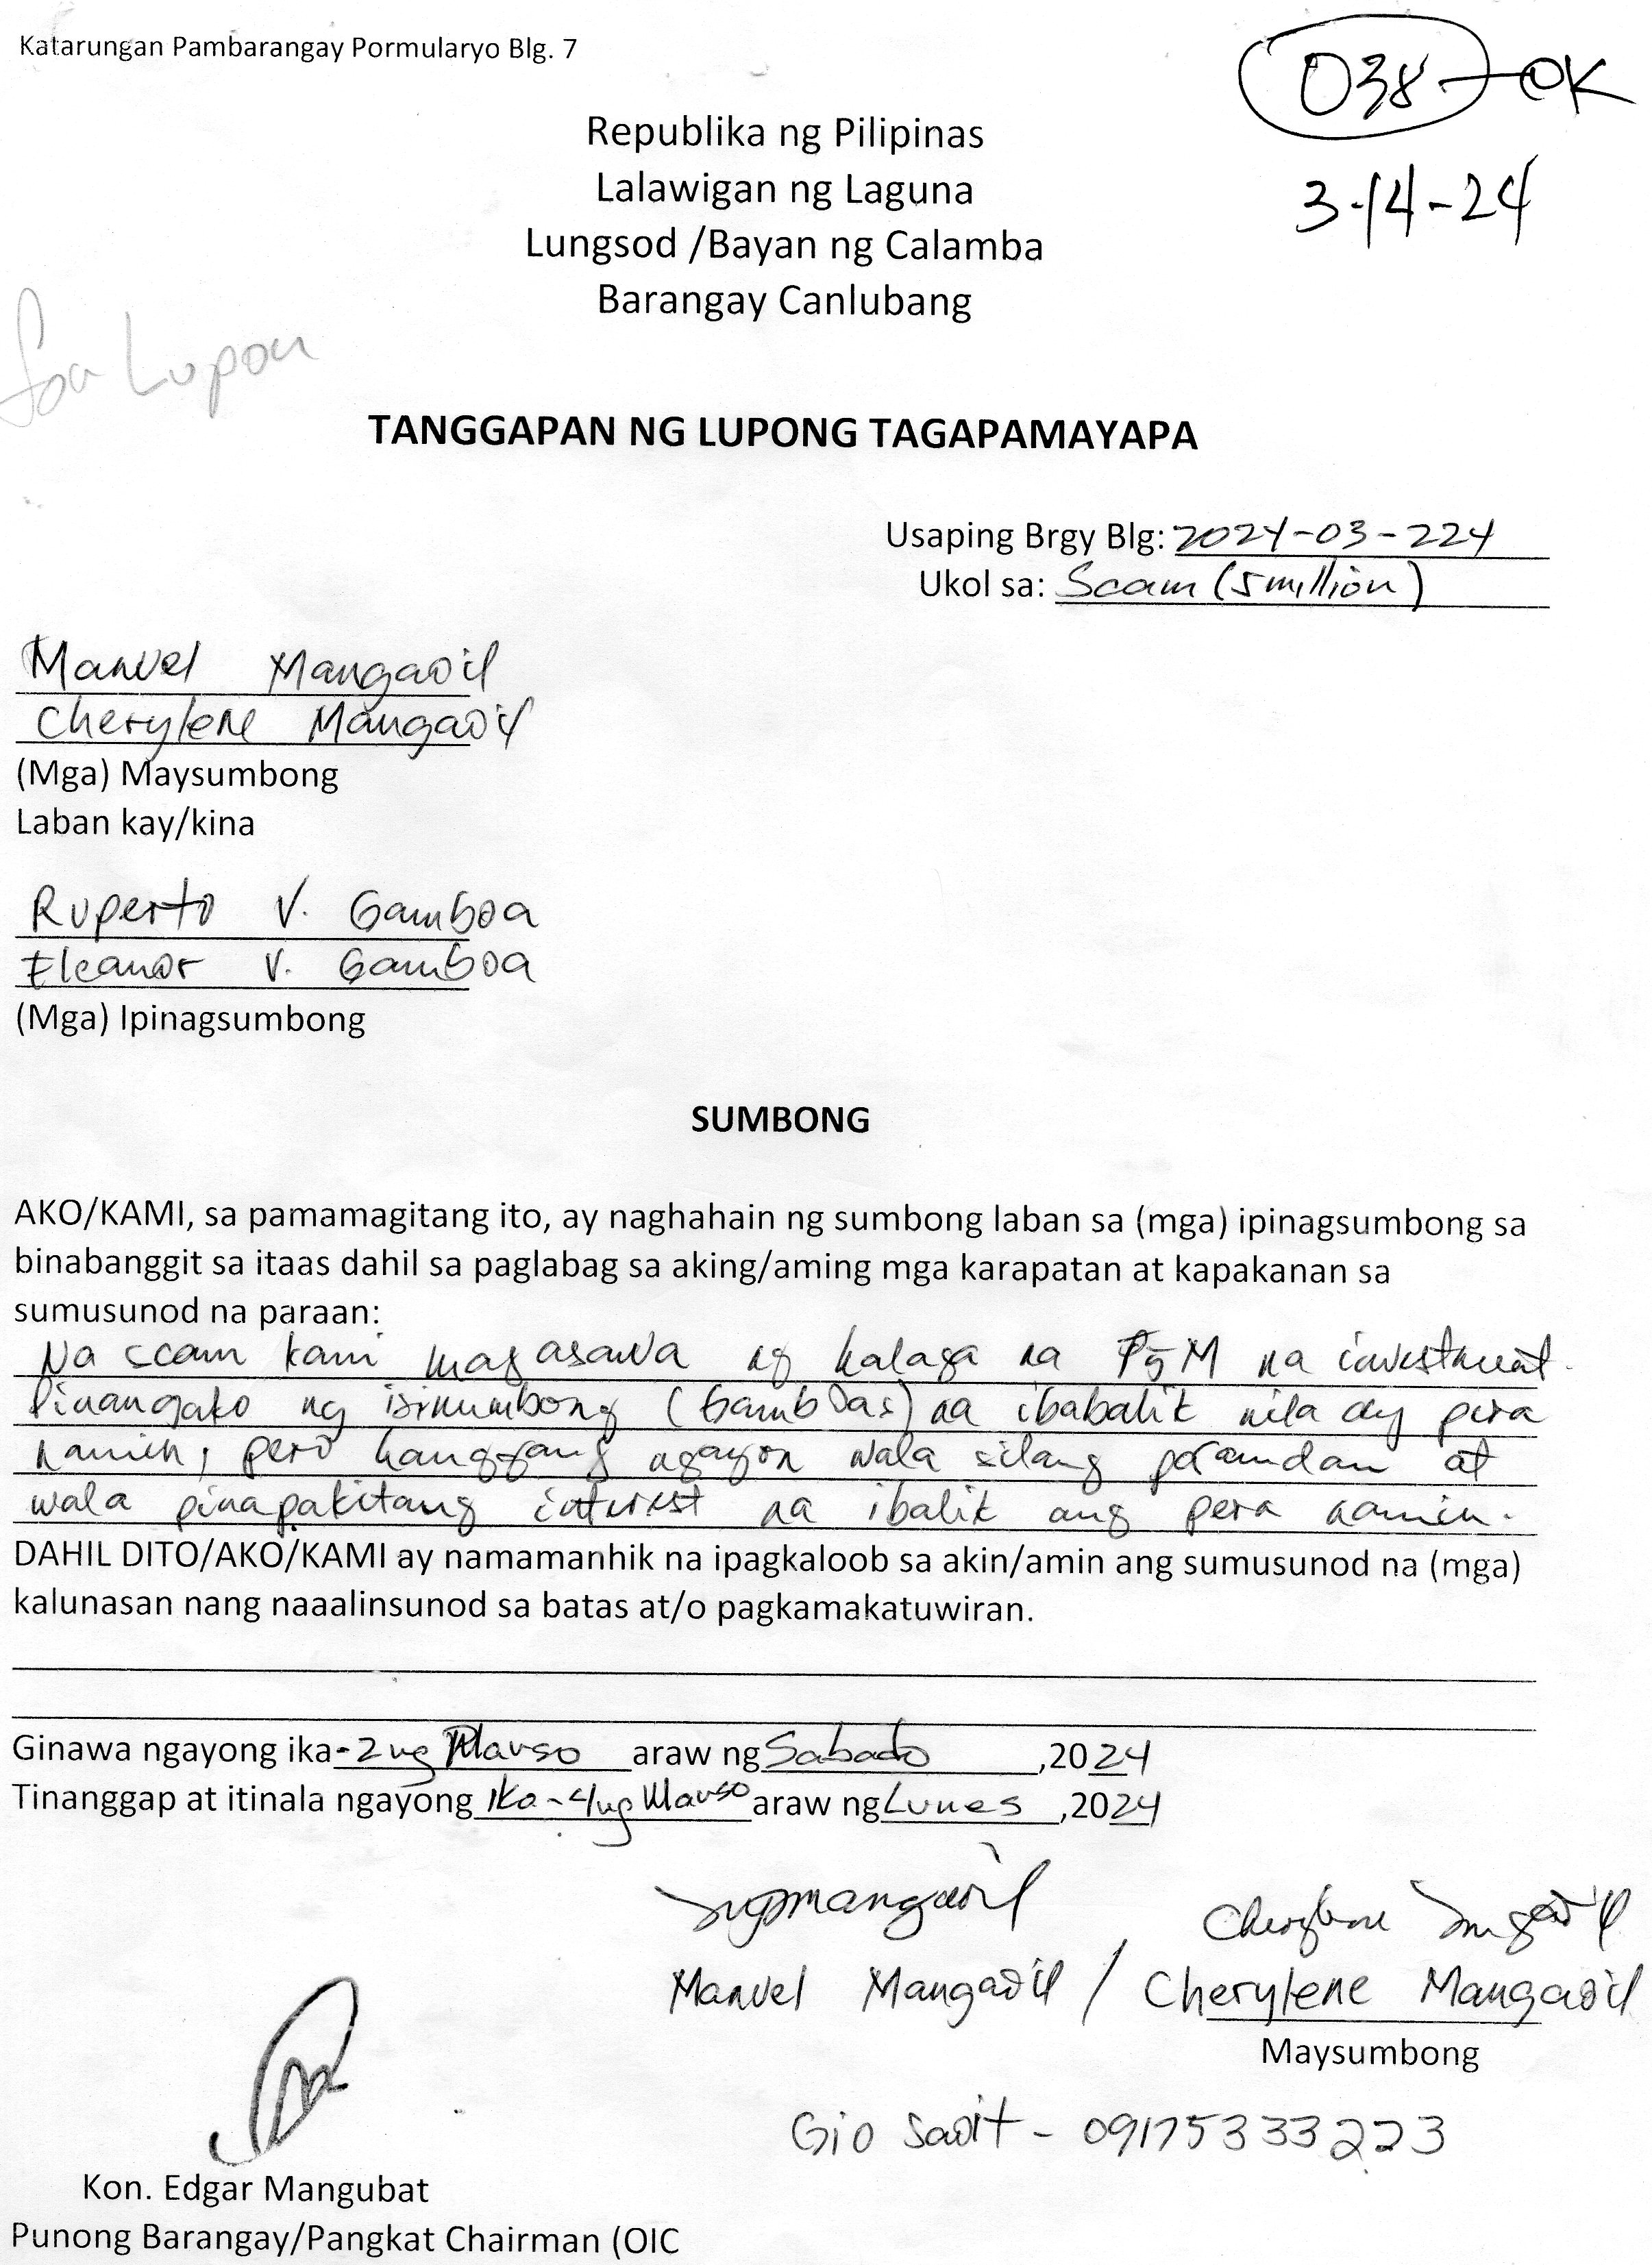 Katarungan Pambarangay Pormularyo Blg. 7
038 - OK
3-14-24
Republika ng Pilipinas
Lalawigan ng Laguna
Lungsod /Bayan ng Calamba
Barangay Canlubang
for Lupon
TANGGAPAN NG LUPONG TAGAPAMAYAPA
Usaping Brgy Blg: 2024-03-224
Ukol sa: Scam (5 million)
Manuel Mangaoil
Cherylene Mangaoil
(Mga) Maysumbong
Laban kay/kina
Ruperto V. Gamboa
Eleanor V. Gamboa
(Mga) Ipinagsumbong
SUMBONG
AKO/KAMI, sa pamamagitang ito, ay naghahain ng sumbong laban sa (mga) ipinagsumbong sa
binabanggit sa itaas dahil sa paglabag sa aking/aming mga karapatan at kapakanan sa
sumusunod na paraan:
Na scam kami mag asawa ng halaga na ₱5M na investment.
Pinangako ng isinumbong (Gamboas) na ibabalik nila ang pera
namin, pero hanggang ngayon wala silang paramdam at
wala pinapakitang interest na ibalik ang pera namin.
DAHIL DITO/AKO/KAMI ay namamanhik na ipagkaloob sa akin/amin ang sumusunod na (mga)
kalunasan nang naaalinsunod sa batas at/o pagkamakatuwiran.
Ginawa ngayong ika-2 ng Marso araw ng Sabado ,2024
Tinanggap at itinala ngayong ika-4 ng Marso araw ng Lunes ,2024
Manuel Mangaoil / Cherylene Mangaoil
Maysumbong
Gio Saoit - 09175333223
Kon. Edgar Mangubat
Punong Barangay/Pangkat Chairman (OIC